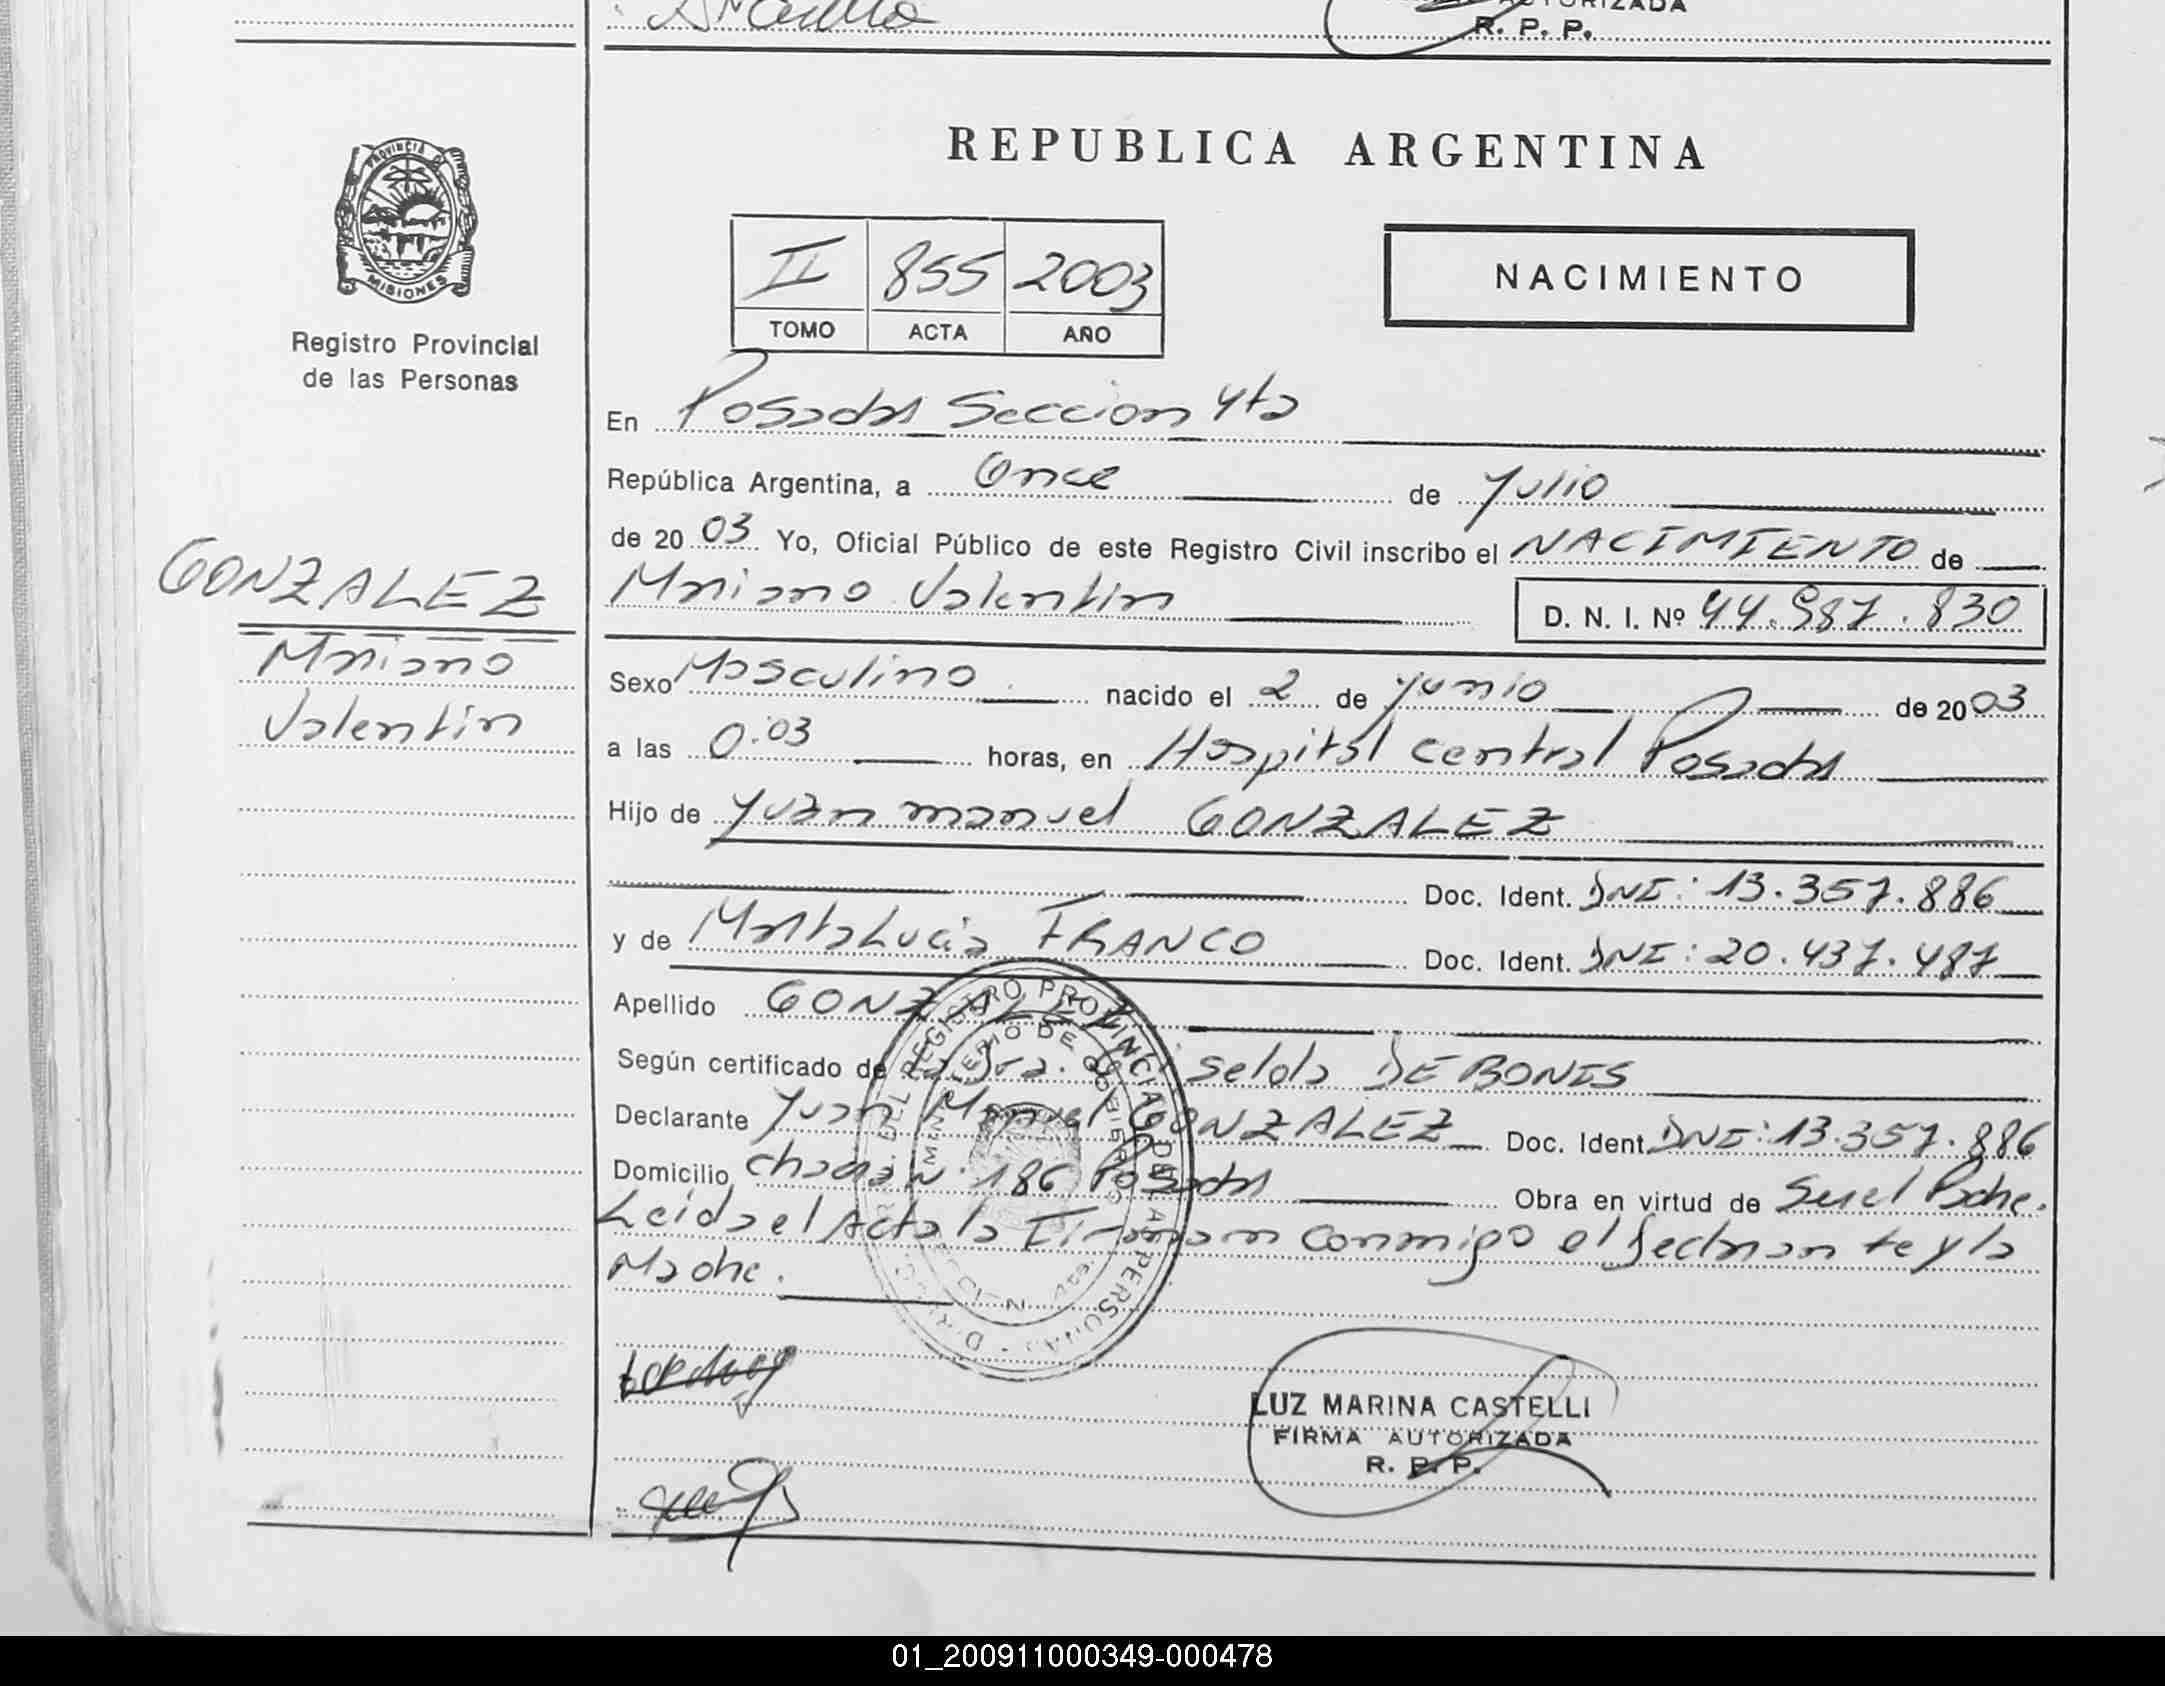 AUTORIZADA
R. P. P.
PROVINCIA D
MISIONES
Registro Provincial
de las Personas
REPUBLICA ARGENTINA
II 855 2003
TOMO ACTA AÑO
NACIMIENTO
En Posadas Seccion 4ta
República Argentina, a Once de Julio
de 20 03 Yo, Oficial Público de este Registro Civil inscribo el NACIMIENTO de
GONZALEZ
Mariano
Valentin
Mariano Valentin D. N. I. Nº 44.987.830
Sexo Masculino nacido el 2 de Junio de 20 03
a las 0:03 horas, en Hospital Central Posadas
Hijo de Juan Manuel GONZALEZ
Doc. Ident. DNI: 13.357.886
y de Marta Lucia FRANCO Doc. Ident. DNI: 20.437.487
Apellido GONZALEZ
Según certificado de la Dra. Griselda DE BONIS
Declarante Juan Manuel GONZALEZ Doc. Ident. DNI: 13.357.886
Domicilio Nº 186 Posadas Obra en virtud de Ser el Padre.
Leida el Acta la Firman conmigo el Declarante y la
Madre.
REGISTRO PROVINCIAL DE LAS PERSONAS
MINISTERIO DE GOBIERNO
LUZ MARINA CASTELLI
FIRMA AUTORIZADA
R. P. P.
01_200911000349-000478